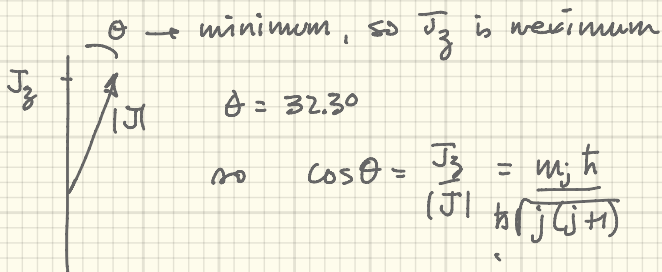 θ → minimum, so J_z is maximum
J_z
|J|
θ = 32.3°
so cos θ = J_z / |J| = m_j ħ / ħ√(j(j+1))